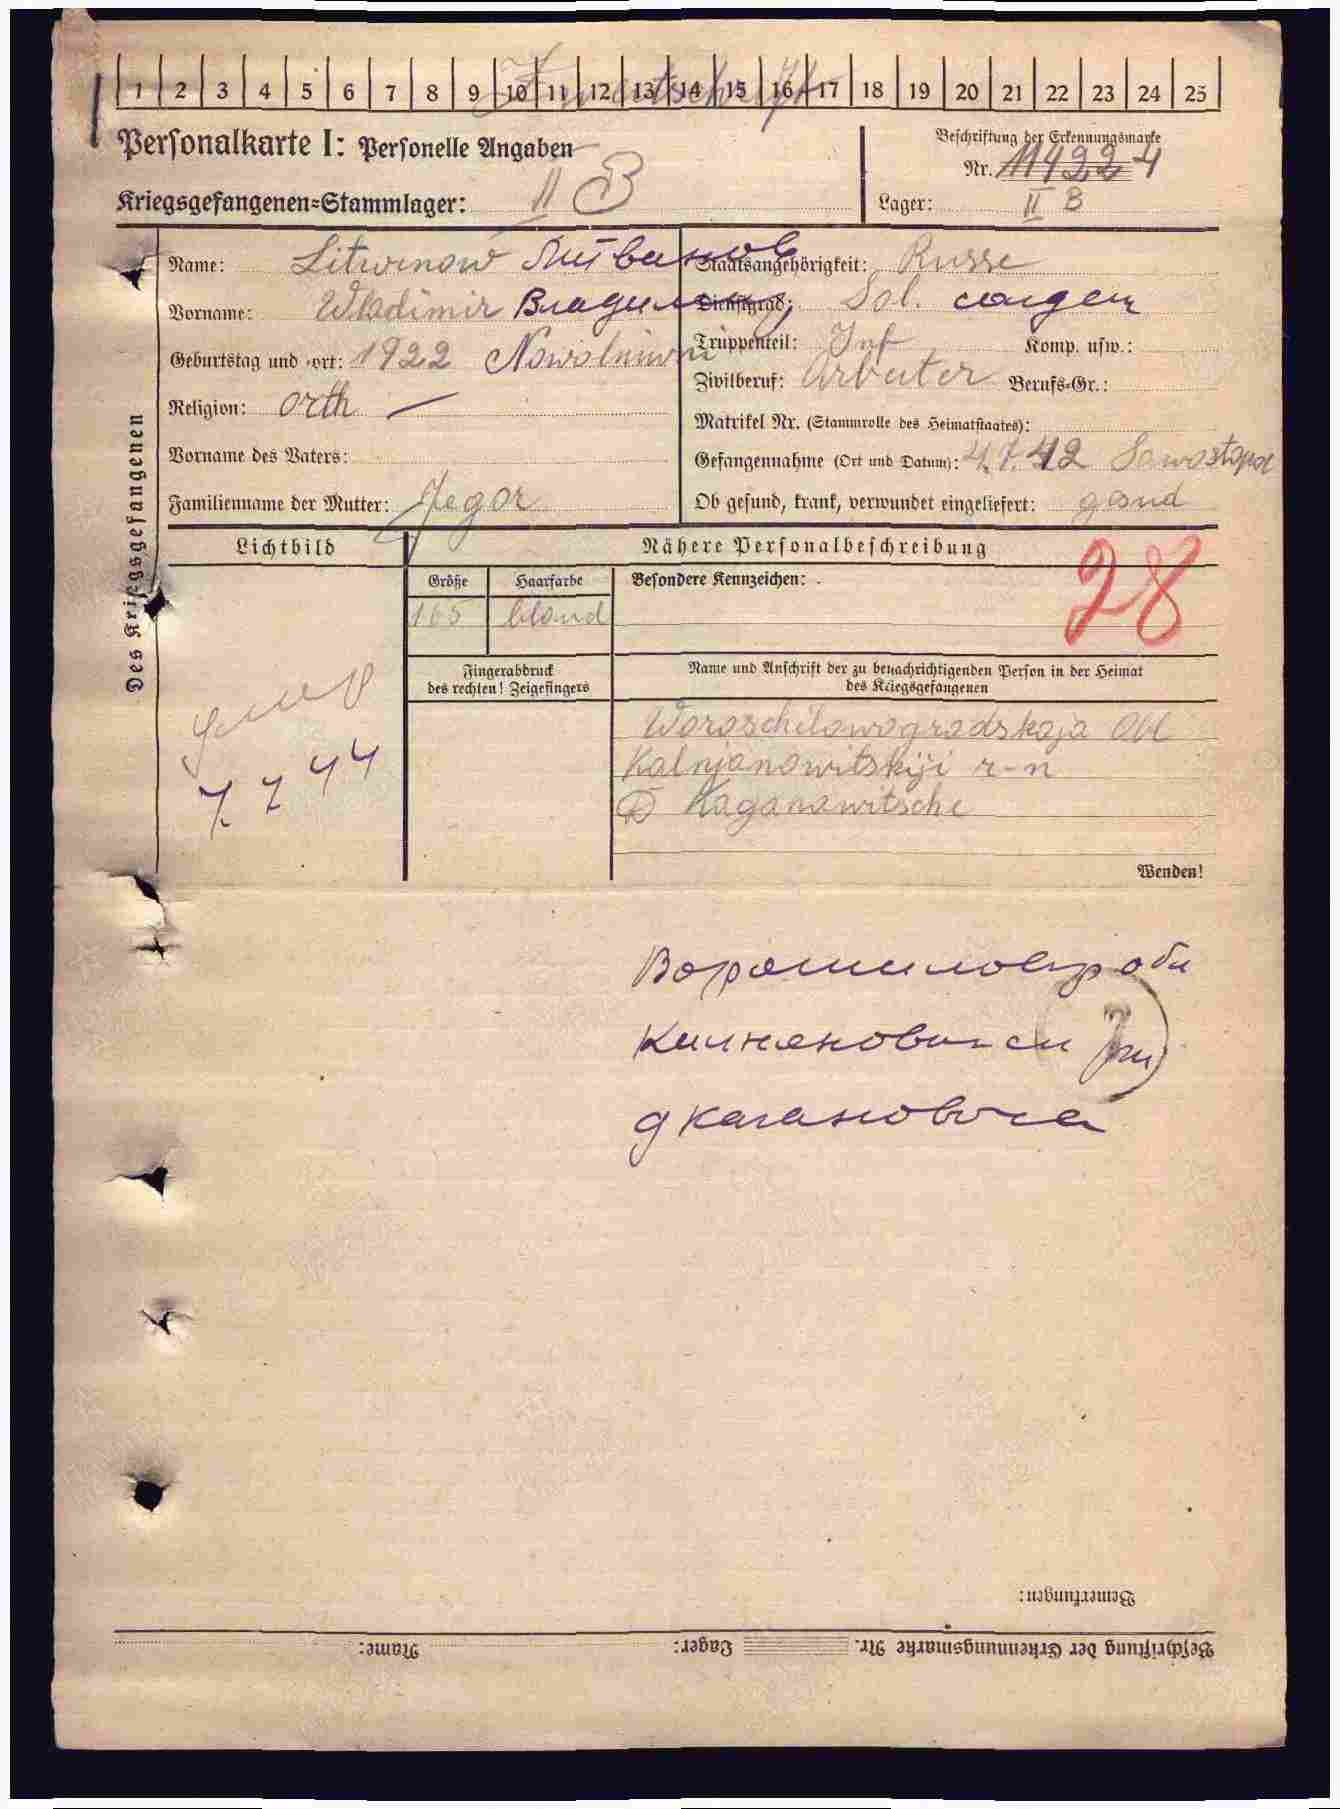 1 2 3 4 5 6 7 8 9 10 11 12 13 14 15 16 17 18 19 20 21 22 23 24 25
Personalkarte I: Personelle Angaben
Beschriftung der Erkennungsmarke
Nr. 114224
Kriegsgefangenen-Stammlager: II B
Lager: II B
Des Kriegsgefangenen
Name: Litwinow Литвинов
Vorname: Wladimir Владимир
Geburtstag und -ort: 1922
Religion: orth —
Vorname des Vaters:
Familienname der Mutter: Jegor
Staatsangehörigkeit: Russe
Dienstgrad: Sol. солдат
Truppenteil: Inf Komp. usw.:
Zivilberuf: Arbeiter Berufs-Gr.:
Matrikel Nr. (Stammrolle des Heimatstaates):
Gefangennahme (Ort und Datum): 4.7.42 Sewastopol
Ob gesund, krank, verwundet eingeliefert: gesund
Lichtbild
Nähere Personalbeschreibung
Größe Haarfarbe Besondere Kennzeichen:
165 blond
28
Fingerabdruck
des rechten! Zeigefingers
Name und Anschrift der zu benachrichtigenden Person in der Heimat
des Kriegsgefangenen
Woroschilowogradskaja Obl
Kalnjanowitskiji r-n
D Kaganowitsche
7 7 44
Wenden!
Ворошиловгр обл
д Кагановича
Bemerkungen:
Beschriftung der Erkennungsmarke Nr. Lager: Name: